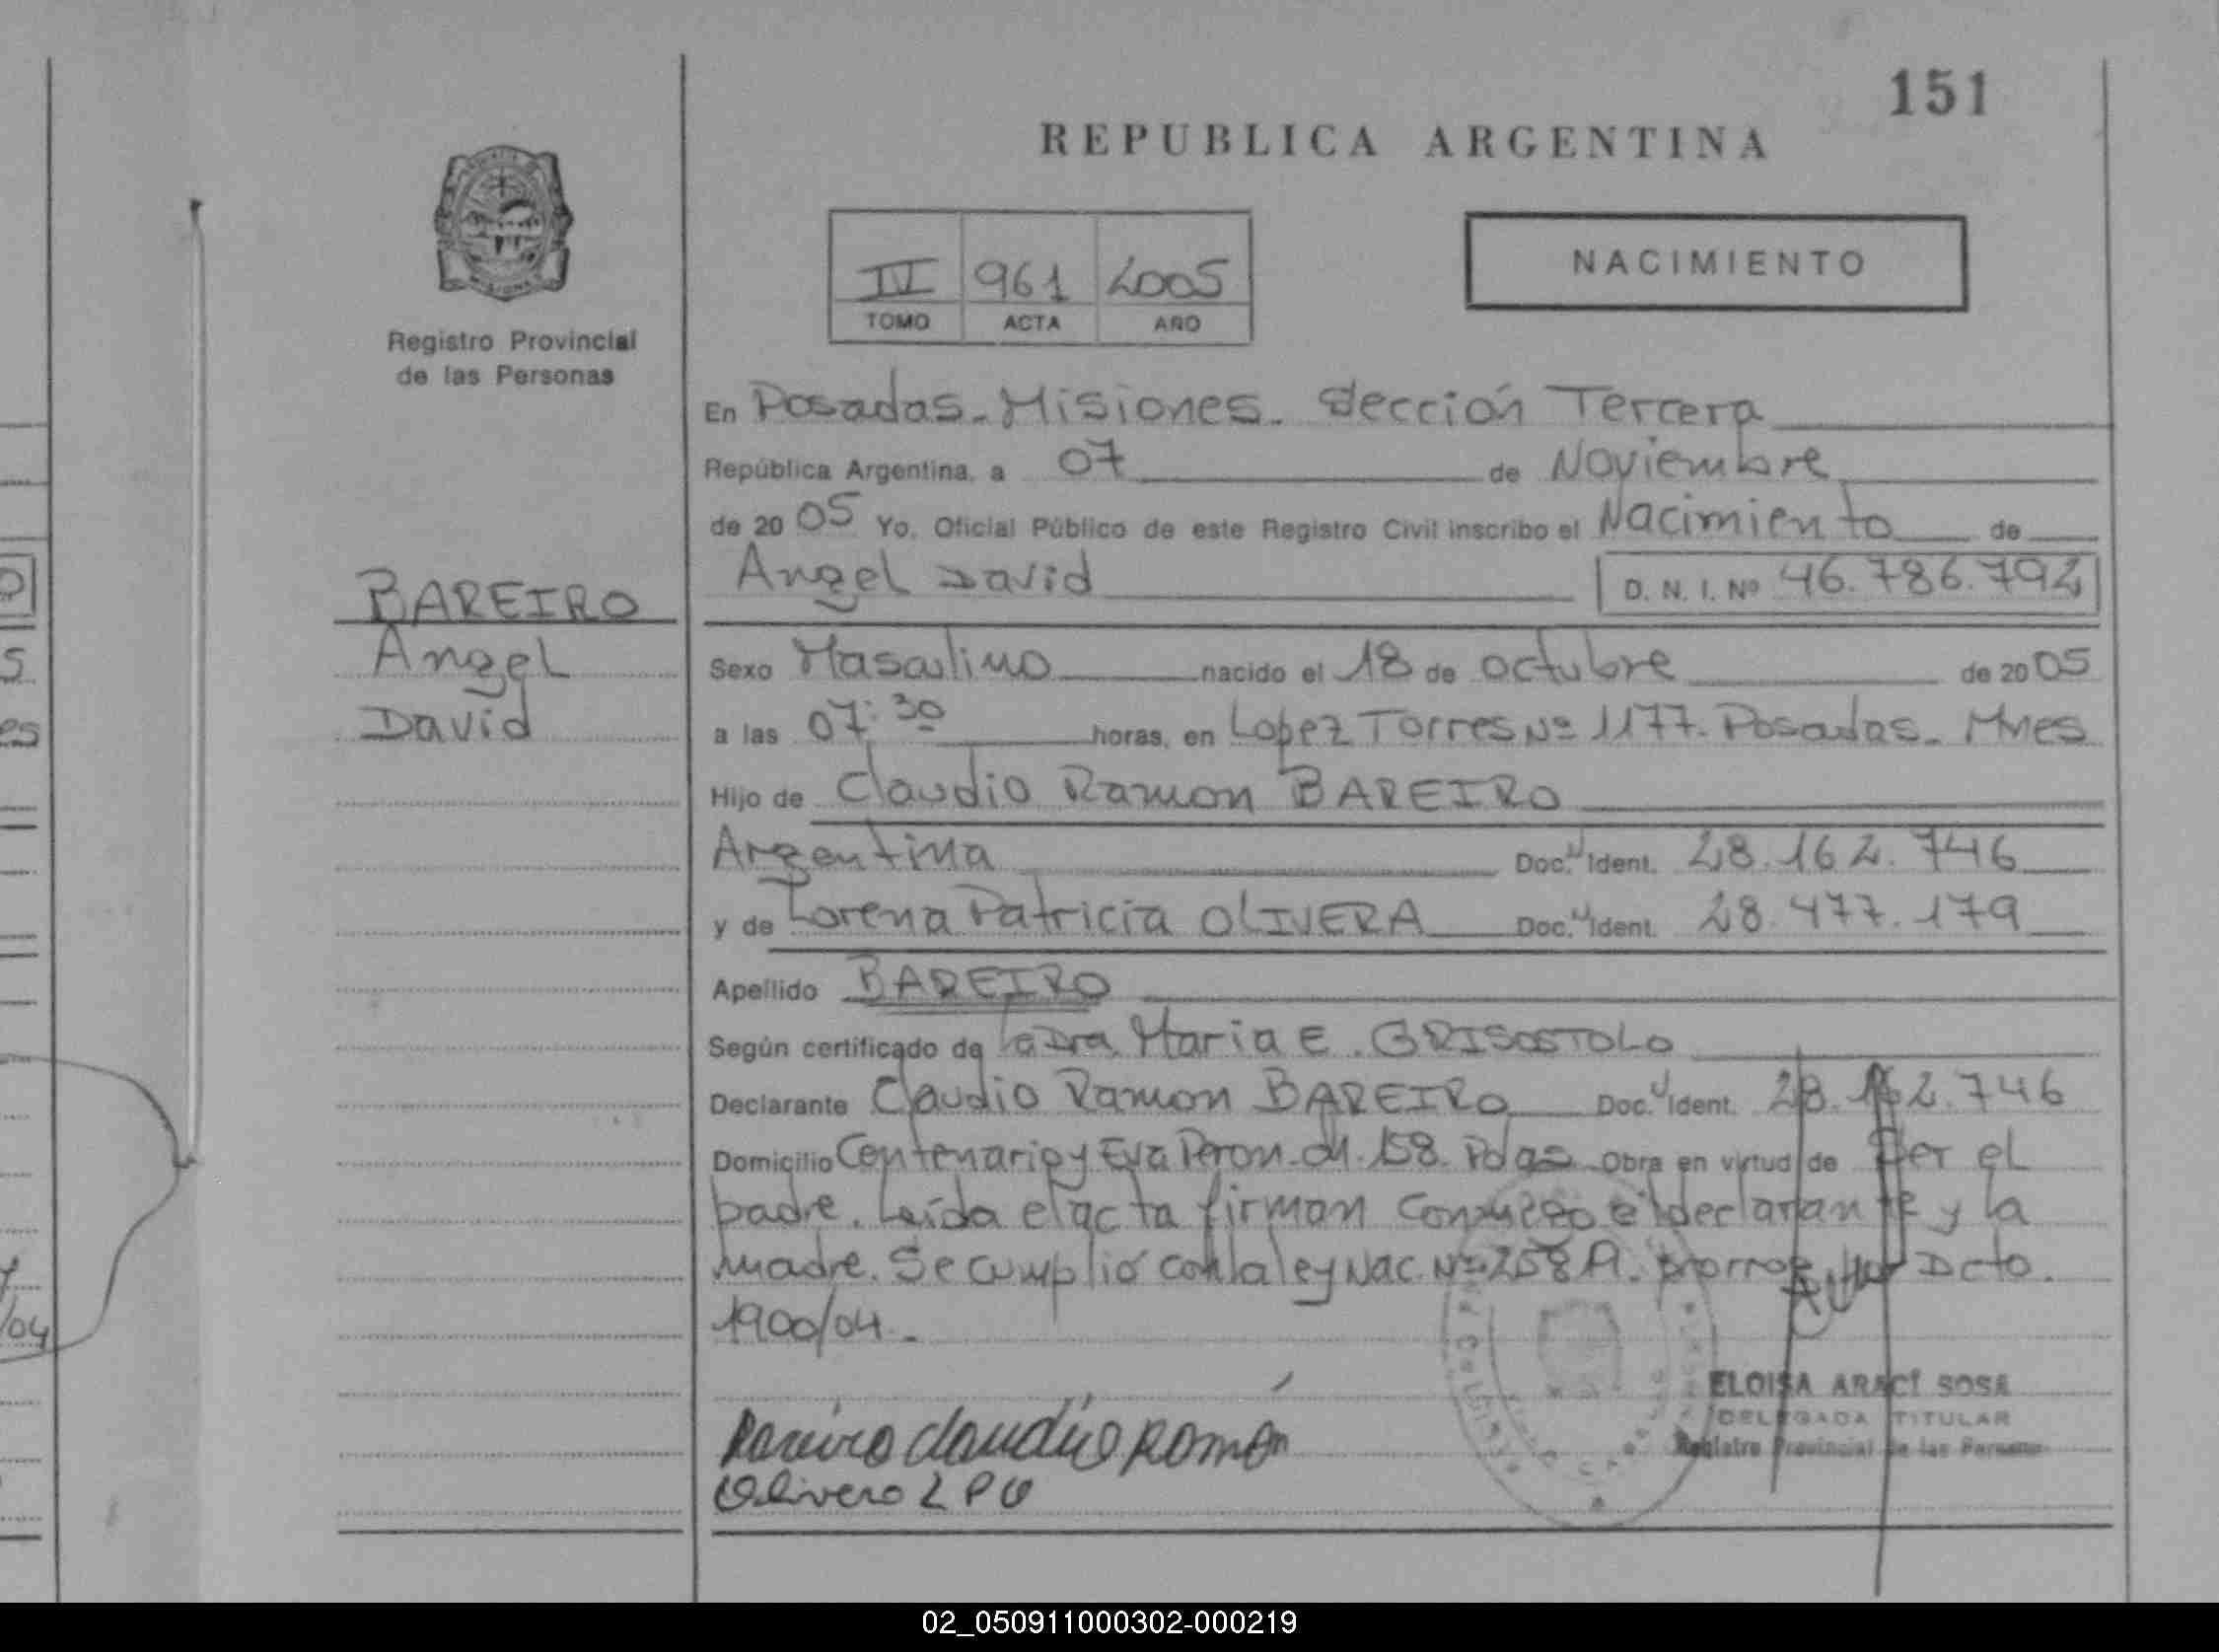 151
REPUBLICA ARGENTINA
NACIMIENTO
IV 961 2005
TOMO ACTA AÑO
Registro Provincial
de las Personas
BAREIRO
Angel
David
En Posadas - Misiones - Sección Tercera
República Argentina, a 07 de Noviembre
de 2005 Yo, Oficial Público de este Registro Civil inscribo el Nacimiento de
Angel David D. N. I. Nº 46.786.794
Sexo Masculino nacido el 18 de octubre de 2005
a las 07:30 horas, en Lopez Torres Nº 1177. Posadas - Mnes
Hijo de Claudio Ramon BAREIRO
Argentina Doc. U Ident. 28.162.746
y de Lorena Patricia OLIVERA Doc. U Ident. 28.477.179
Apellido BAREIRO
Según certificado de la Dra. Maria E. GRISOSTOLO
Declarante Claudio Ramon BAREIRO Doc. U Ident. 28.162.746
Domicilio Centenario y Eva Peron - ch. 158. Pdas Obra en virtud de Ser el
padre. Leída el acta firman conmigo el declarante y la
madre. Se cumplió con la ley Nac. Nº 258 prorrog. por Dcto.
1900/04 -
Bareiro Claudio Ramón
Olivera L P
ELOISA ARACÍ SOSA
DELEGADA TITULAR
Registro Provincial de las Personas
5
es
/04
02_050911000302-000219